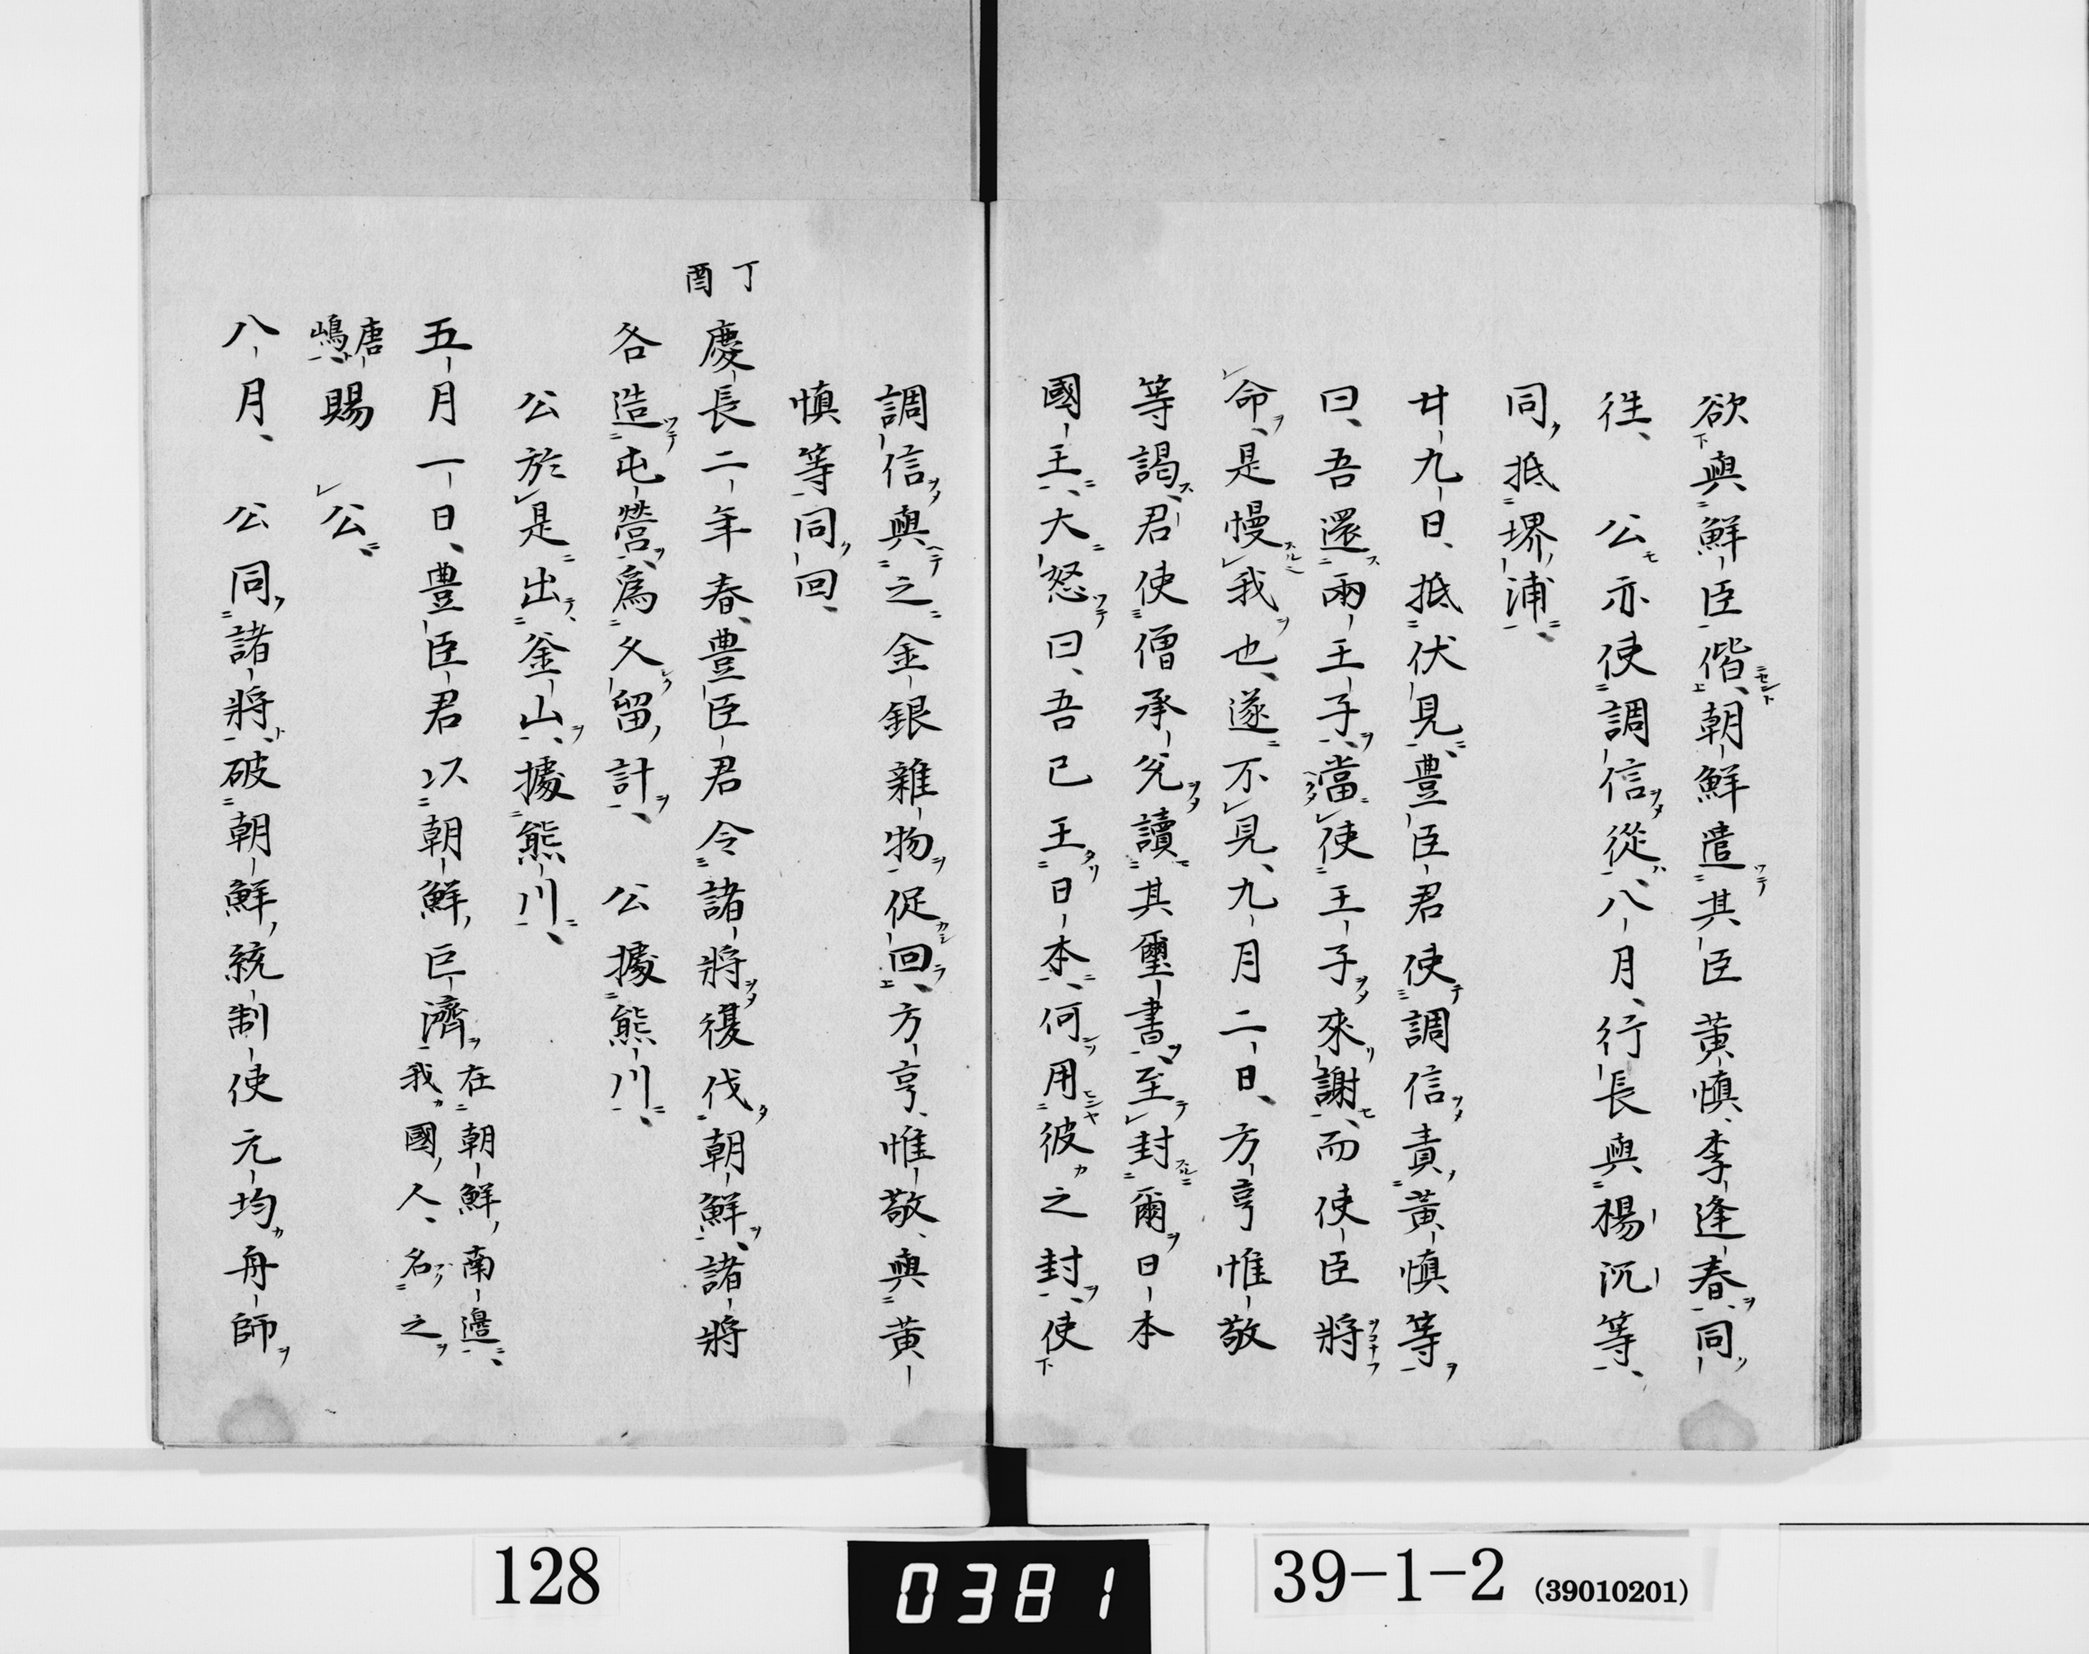 欲與鮮臣偕、朝鮮遣其臣黃愼、李逢春、同
徃、　公亦使調信從、八月、行長與楊沉等、
同抵堺浦、
廿九日、抵伏見、豊臣君使調信責黃愼等
曰、吾還兩王子、當使王子來謝、而使臣將
命、是慢我也、遂不見、九月二日、方亨惟敬
等謁、君使僧承兊讀其璽書、至封爾日本
國王、大怒曰、吾已王日本、何用彼之封、使
調信與之金銀雜物促回、方亨、惟敬、與黃
愼等同回、
丁酉
慶長二年春、豊臣君令諸將復伐朝鮮、諸將
各造屯營、爲久留計、　公據熊川、
公於是出釜山、據熊川、
五月一日、豊臣君以朝鮮巨濟在朝鮮南邊、我國人、名之
唐嶋賜　公、
八月、　公同諸將、破朝鮮統制使元均舟師
128
0381
39-1-2 (39010201)